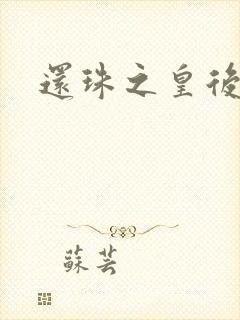 還珠之皇後
蘇芸